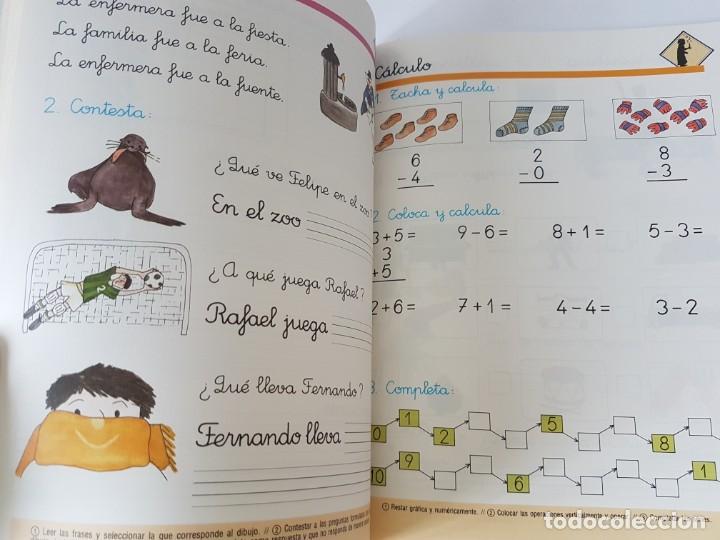 La enfermera fue a la fiesta.
La familia fue a la feria.
La enfermera fue a la fuente.
2. Contesta:
¿Qué ve Felipe en el zoo?
En el zoo
¿A qué juega Rafael?
Rafael juega
¿Qué lleva Fernando?
Fernando lleva
① Leer las frases y seleccionar la que corresponde al dibujo. // ② Contestar a las preguntas
Cálculo
1. Tacha y calcula:
6
- 4
2
- 0
8
- 3
2 Coloca y calcula
3+5=
9-6=
8+1=
5-3=
3
+5
2+6=
7+1=
4-4=
3-2
3. Completa:
0 1 2 5 8
10 9 6 1
① Restar gráfica y numéricamente. // ② Colocar las operaciones verticalmente y operar. // ③ Completar
todocoleccion